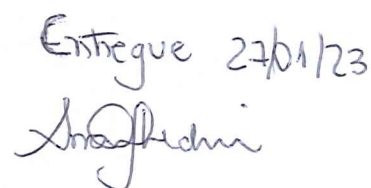 Entregue 27/01/23